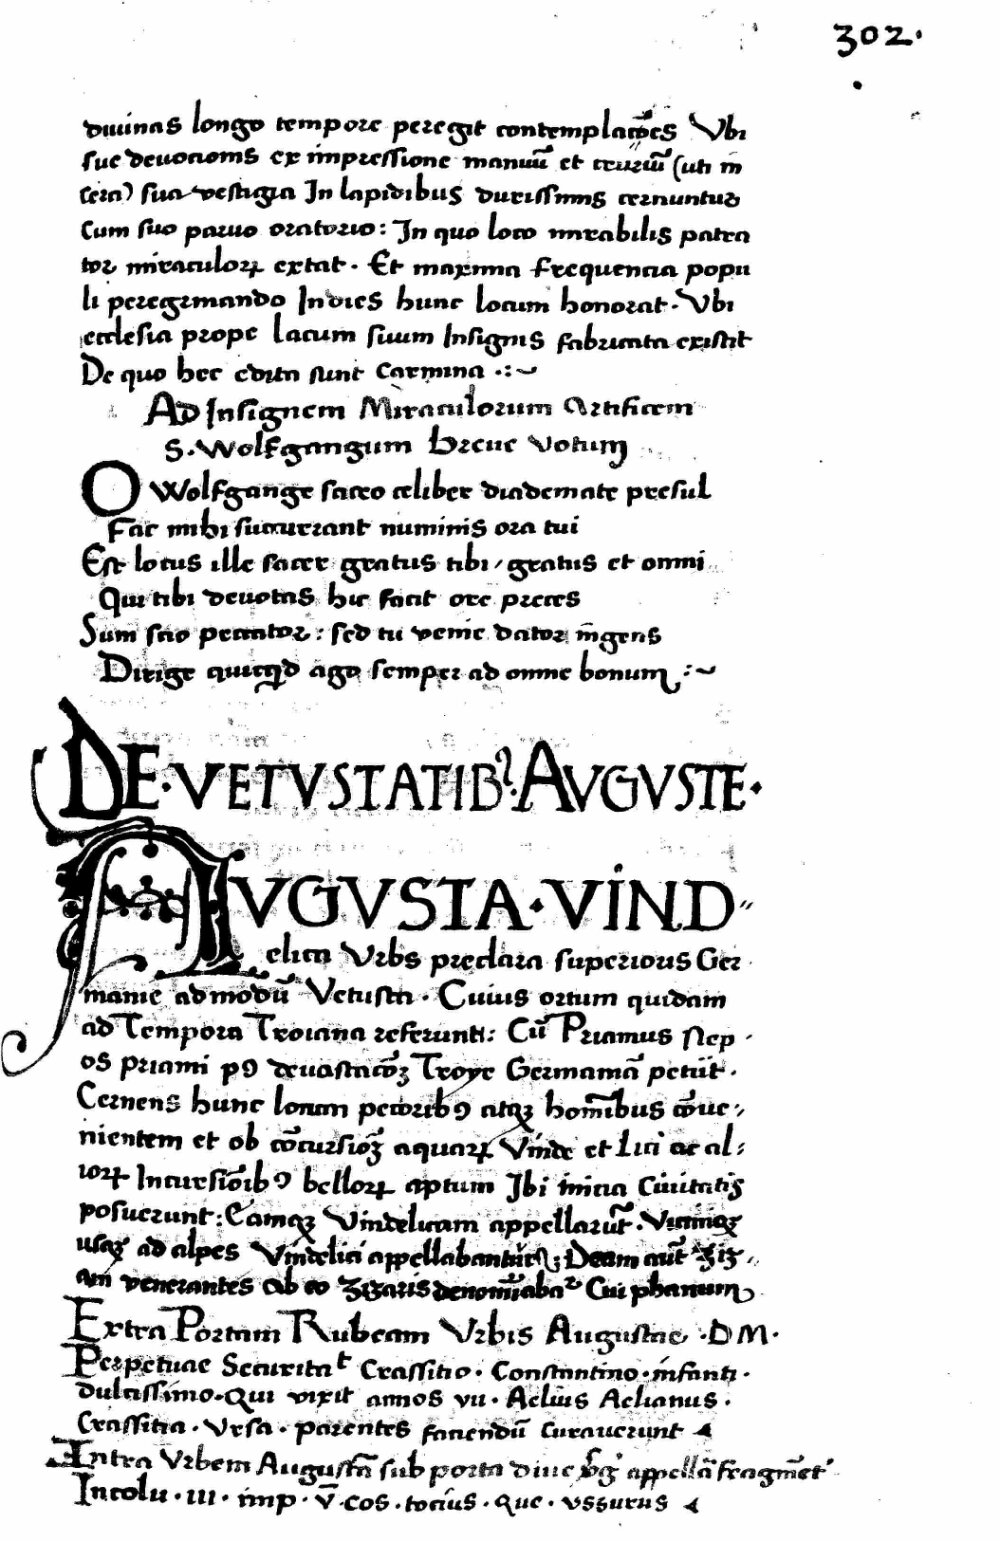 302.
diuinas longo tempore peregit contemplacōēs Vbi
sue deuocionis ex impressione manuū et cruriū (uti in
cera) sua vestigia In lapidibus durissimis cernuntur
Cum suo paruo oratorio: In quo loco mirabilis patra
tor miraculoꝝ extat. Et maxima frequencia popu
li peregrinando Indies hunc locum honorat. Vbi
ecclesia prope lacum suum Insignis fabricata existit
De quo hec edita sunt carmina .:~
Ad Insignem Miraculorum Artificem
S. Wolfgangum breue votum
O Wolfgange sacro celiber diademate presul
Fac mihi succurrant numinis ora tui
Est locus ille sacer gratus tibi / gratus et omni
Qui tibi deuotas hic facit ore preces
Sum scio peccator: sed tu venie dator ingens
Dirige quicqd ago semper ad omne bonum :~
DE·VETVSTATIBꝰ·AVGVSTE·
AVGVSTA·VIND〃
elica Vrbs preclara superioris Ger
manie admodū Vetusta. Cuius ortum quidam
ad Tempora Troiana referunt: Cū Priamus nep
os priami pꝰ deuastacōꝫ Troye Germaniā petiit.
Cernens hunc locum pecoribꝰ atqꝫ hominibus cōue〃
nientem et ob cōcursioꝫ aquaꝝ Vinde et Lici ac al:
ioꝝ Incursiōibꝰ belloꝝ aptum Ibi inicia Ciuitatis
posuerunt: Eamqꝫ Vindelicam appellarūt. Viciniqꝫ
usqꝫ ad alpes Vindelici appellabantur; Deam aūt Ziz〃
am venerantes ab eo Zizaris denomīabaʳ Cui phanum
Extra Portam Rubeam Vrbis Augustae .D M.
Perpetuae Securitat Crassitio. Constantino. infanti.
dulcissimo. Qui vixit annos vii. Aelius Aelianus.
Crassitia. Vrsa. parentes faciendū curauerunt
Intra Vrbem Augustā sub porta diue appellā fragmēt
Incolu. iii. imp. V̄ cos. tocius. que. vssurus